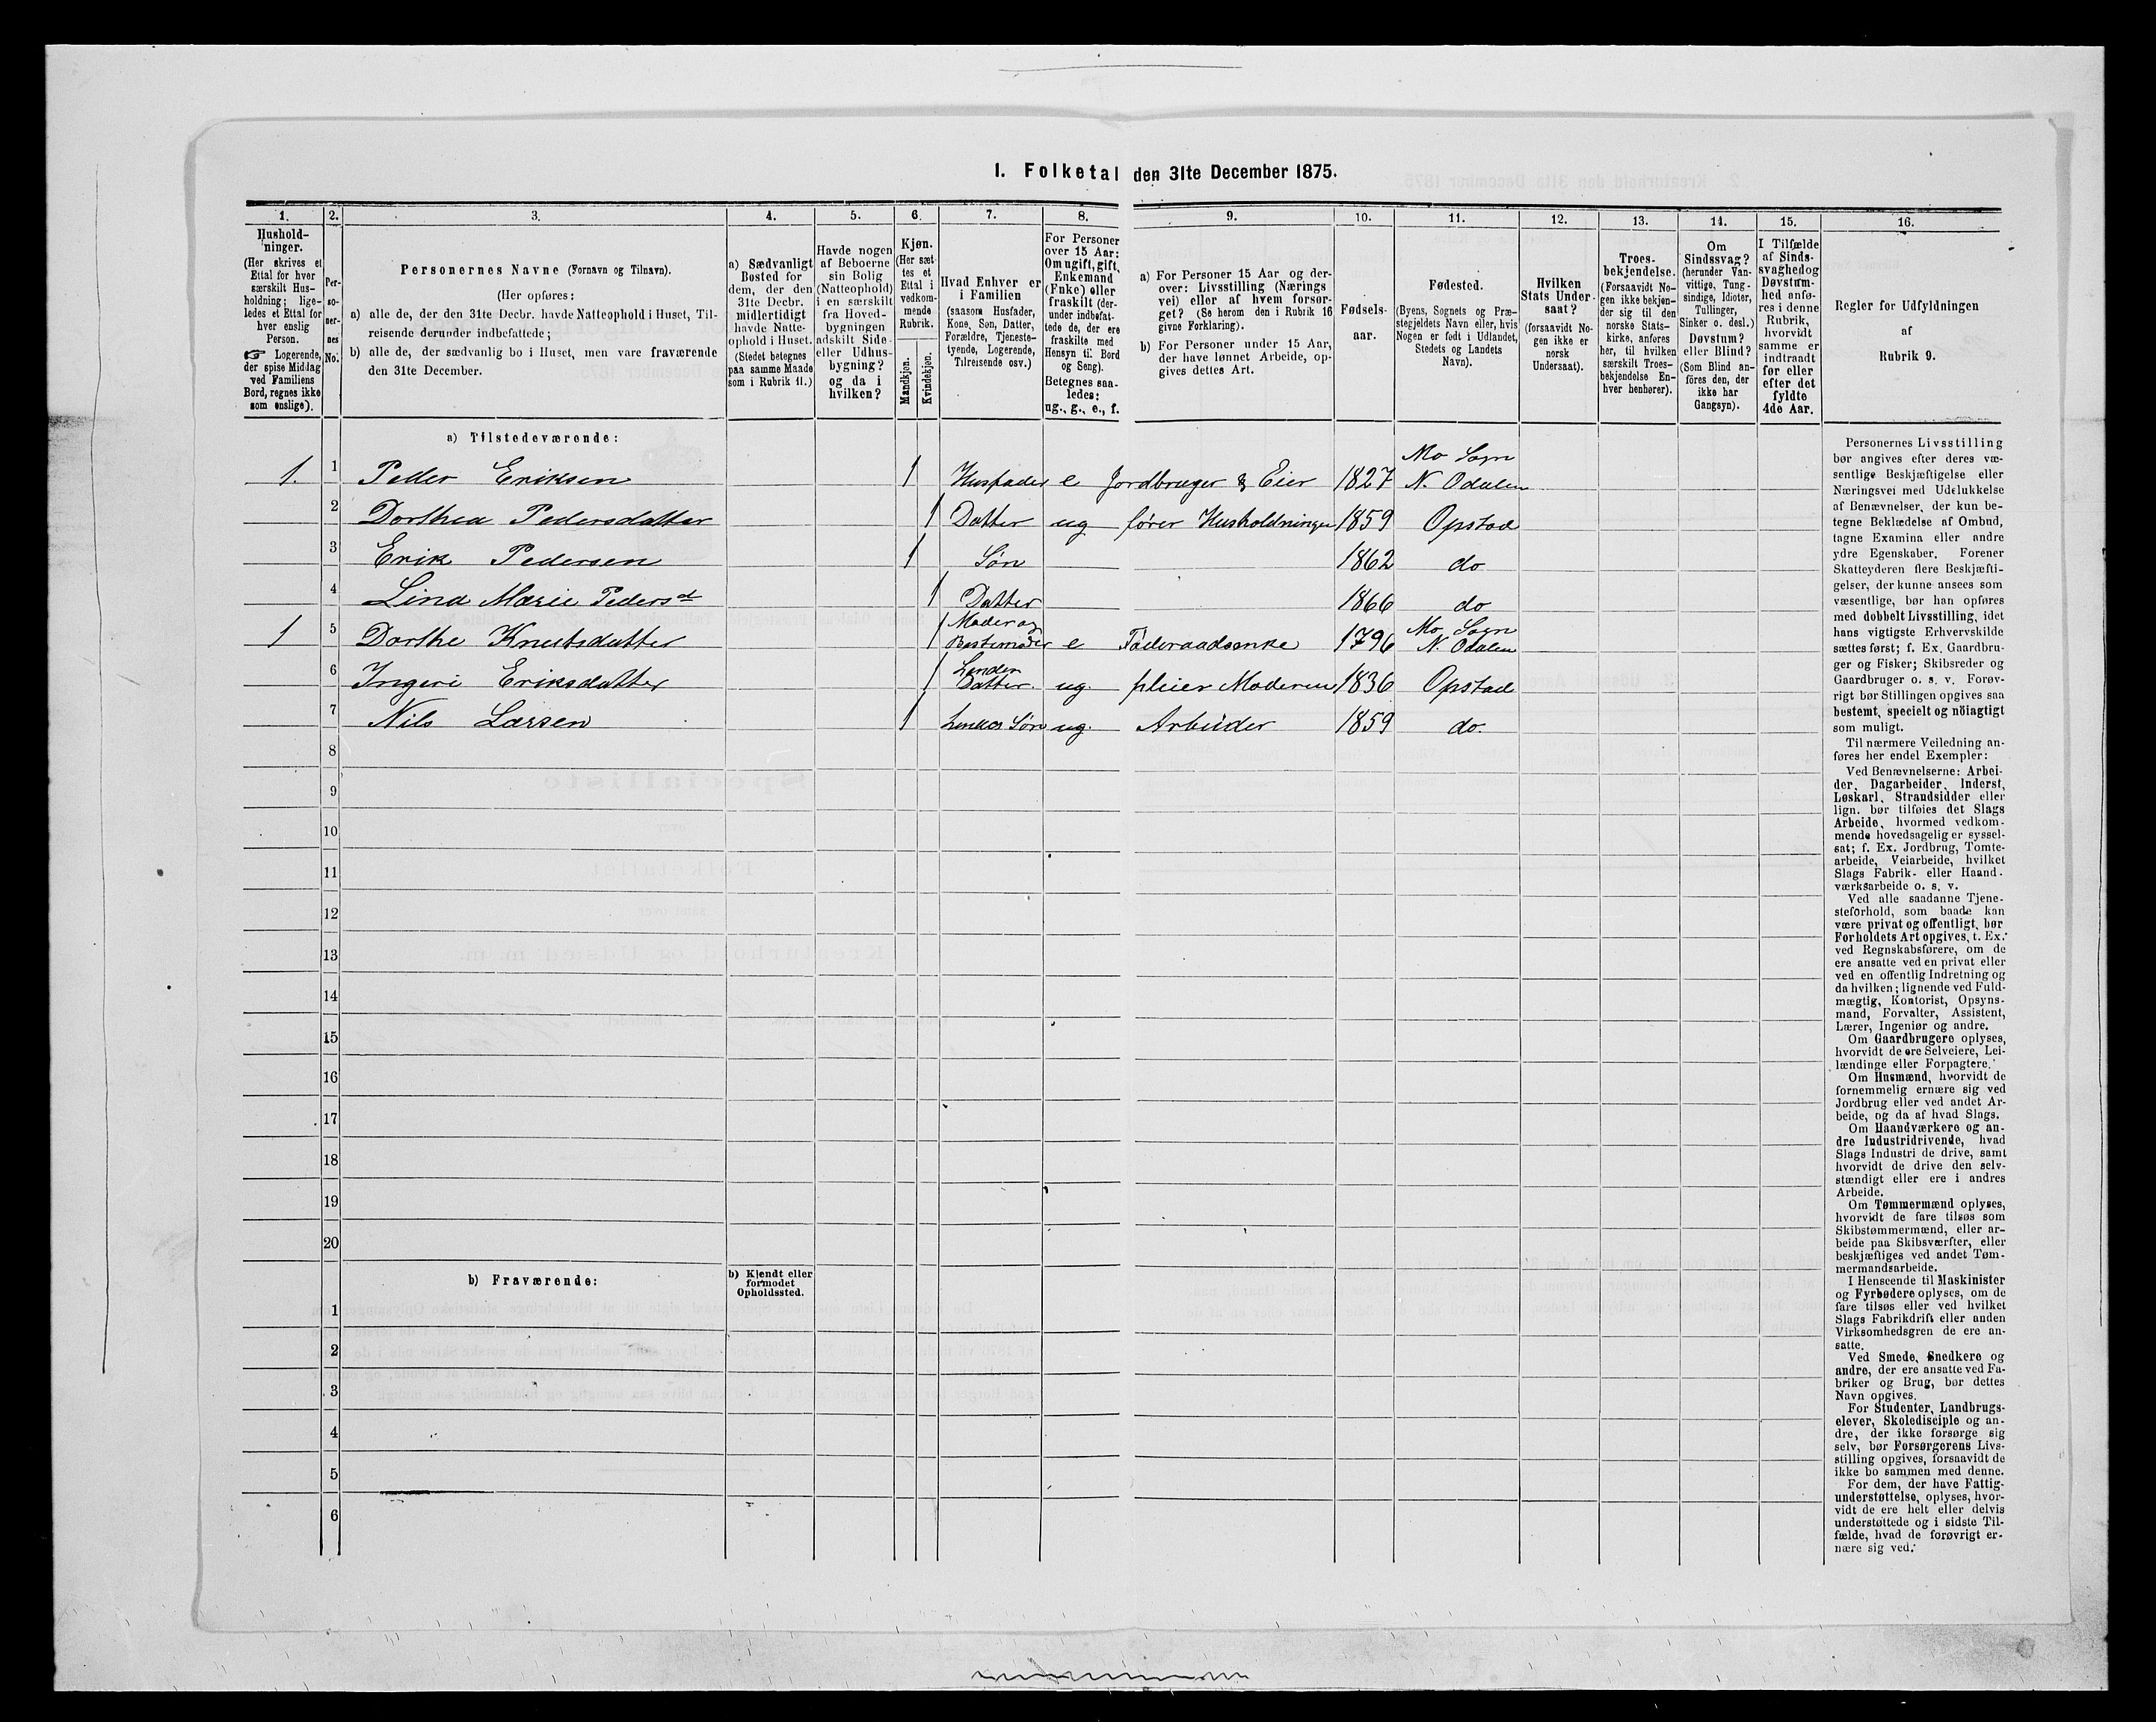 I. Folketal den 31te December 1875.
1. 2. 3. 4. 5. 6. 7. 8. 9. 10. 11. 12. 13. 14. 15. 16.
Hushold-
ninger.
(Her skrives et
Ettal for hver
særskilt Hus-
holdning; lige-
ledes et Ettal for
hver enslig
Person.
☞ Logerende,
der spise Middag
ved Familiens
Bord, regnes ikke
som enslige).
Per-
so-
ner-
nes
No.
Personernes Navne (Fornavn og Tilnavn).
(Her opføres:
a) alle de, der den 31te Decbr. havde Natteophold i Huset, Til-
reisende derunder indbefattede;
b) alle de, der sædvanlig bo i Huset, men vare fraværende
den 31te December.
a) Sædvanligt
Bosted for
dem, der den
31te Decbr.
midlertidigt
havde Natte-
ophold i Huset.
(Stedet betegnes
paa samme Maade
som i Rubrik 11.)
Havde nogen
af Beboerne
sin Bolig
(Natteophold)
i en særskilt
fra Hoved-
bygningen
adskilt Side-
eller Udhus-
bygning?
og da i
hvilken?
Kjøn.
(Her sæt-
tes et
Ettal i
vedkom-
mende
Rubrik.
Mandkjøn.
Kvindekjøn.
Hvad Enhver er
i Familien
(saasom Husfader,
Kone, Søn, Datter,
Forældre, Tjeneste-
tyende, Logerende,
Tilreisende osv.)
For Personer
over 15 Aar:
Om ugift, gift,
Enkemand
(Enke) eller
fraskilt (der-
under indbefat-
tede de, der ere
fraskilte med
Hensyn til Bord
og Seng).
Betegnes saa-
ledes:
ug., g., e., f.
a) For Personer 15 Aar og der-
over: Livsstilling (Nærings
vei) eller af hvem forsør-
get? (Se herom den i Rubrik 16
givne Forklaring).
b) For Personer under 15 Aar,
der have lønnet Arbeide, op-
gives dettes Art.
Fødsels-
aar.
Fødested.
(Byens, Sognets og Præ-
stegjeldets Navn eller, hvis
Nogen er født i Udlandet,
Stedets og Landets
Navn).
Hvilken
Stats Under-
saat?
(forsaavidt No-
gen ikke er
norsk
Undersaat).
Troes-
bekjendelse.
(Forsaavidt No-
gen ikke bekjen-
der sig til den
norske Stats-
kirke, anføres
her, til hvilken
særskilt Troes-
bekjendelse En-
hver henhører).
Om
Sindssvag?
(herunder Van-
vittige, Tung-
sindige, Idioter,
Tullinger,
Sinker o. desl.)
Døvstum?
eller Blind?
(Som Blind an-
føres den, der
ikke har
Gangsyn).
I Tilfælde
af Sinds-
svaghed og
Døvstum-
hed anfø-
res i denne
Rubrik,
hvorvidt
samme er
indtraadt
før eller
efter det
fyldte
4de Aar.
Regler for Udfyldningen
af
Rubrik 9.
a) Tilstedeværende:
1. 1 Peder Eriksen 1 Husfader e Jordbruger & Eier 1827 Mo Sogn N. Odalen
2 Dorthea Pedersdatter 1 Datter ug fører Husholdningen 1859 Opstad
3 Erik Pedersen 1 Søn 1862 do
4 Lina Marie Pedersd 1 Datter 1866 do
1 5 Dorthe Knutsdatter 1 Moder og Bestemoder e Føderaadsenke 1796 Mo Sogn N. Odalen
6 Ingeri Eriksdatter 1 Datter. ug. pleier Moderen 1836 Opstad
7 Nils Larsen 1 Søn ug. Arbeider 1859 do.
8
9
10
11
12
13
14
15
16
17
18
19
20
b) Fraværende:
b) Kjendt eller
formodet
Opholdssted.
1
2
3
4
5
6
Personernes Livsstilling
bør angives efter deres væ-
sentlige Beskjæftigelse eller
Næringsvei med Udelukkelse
af Benævnelser, der kun be-
tegne Beklædelse af Ombud,
tagne Examina eller andre
ydre Egenskaber. Forener
Skatteyderen flere Beskjæfti-
gelser, der kunne ansees som
væsentlige, bør han opføres
med dobbelt Livsstilling, idet
hans vigtigste Erhvervskilde
sættes først; f. Ex. Gaardbru-
ger og Fisker; Skibsreder og
Gaardbruger o. s. v. Forøv-
rigt bør Stillingen opgives saa
bestemt, specielt og nöiagtigt
som muligt.
Til nærmere Veiledning an-
føres her endel Exempler:
Ved Benævnelserne: Arbei-
der, Dagarbeider, Inderst,
Løskarl, Strandsidder eller
lign. bør tilføies det Slags
Arbeide, hvormed vedkom-
mende hovedsagelig er syssel-
sat; f. Ex. Jordbrug, Tomte-
arbeide, Veiarbeide, hvilket
Slags Fabrik- eller Haand-
værksarbeide o. s. v.
Ved alle saadanne Tjene-
steforhold, som baade kan
være privat og offentligt, bør
Forholdets Art opgives, t. Ex.
ved Regnskabsførere, om de
ere ansatte ved en privat eller
ved en offentlig Indretning og
da hvilken; lignende ved Fuld-
mægtig, Kontorist, Opsyns-
mand, Forvalter, Assistent,
Lærer, Ingeniør og andre.
Om Gaardbrugere oplyses,
hvorvidt de ere Selveiere, Lei-
lændinge eller Forpagtere.
Om Husmænd, hvorvidt de
fornemmelig ernære sig ved
Jordbrug eller ved andet Ar-
beide, og da af hvad Slags.
Om Haandværkere og an-
dre Industridrivende, hvad
Slags Industri de drive, samt
hvorvidt de drive den selv-
stændigt eller ere i andres
Arbeide.
Om Tømmermænd oplyses,
hvorvidt de fare tilsøs som
Skibstømmermænd, eller ar-
beide paa Skibsværfter, eller
beskjæftiges ved andet Tøm-
mermandsarbeide.
I Henseende til Maskinister
og Fyrbødere oplyses, om de
fare tilsøs eller ved hvilket
Slags Fabrikdrift eller anden
Virksomhedsgren de ere an-
satte.
Ved Smede, Snedkere og
andre, der ere ansatte ved Fa-
briker og Brug, bør dettes
Navn opgives.
For Studenter, Landbrugs-
elever, Skoledisciple og an-
dre, der ikke forsørge sig
selv, bør Forsørgerens Livs-
stilling opgives, forsaavidt de
ikke bo sammen med denne.
For dem, der have Fattig-
understøttelse, oplyses, hvor-
vidt de ere helt eller delvis
understøttede og i sidste Til-
fælde, hvad de forøvrigt er-
nære sig ved.